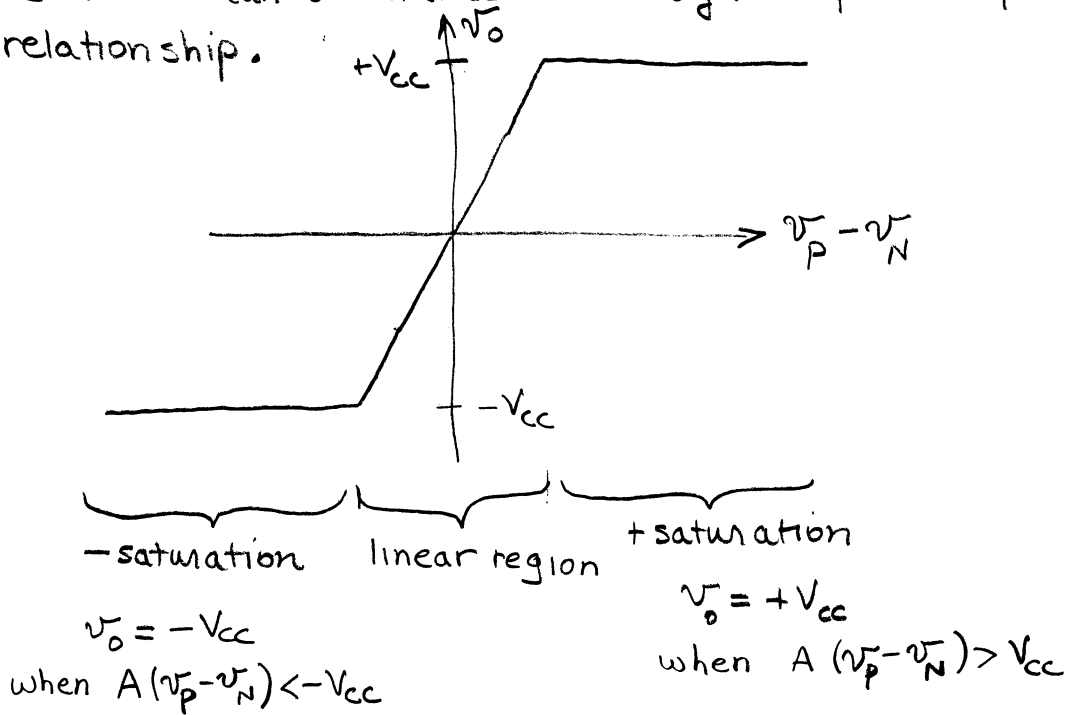 can
relationship.
v₀
+Vcc
vP - vN
-Vcc
-saturation
linear region
+saturation
v₀ = -Vcc
when A(vP-vN)<-Vcc
v₀ = +Vcc
when A (vP-vN)> Vcc